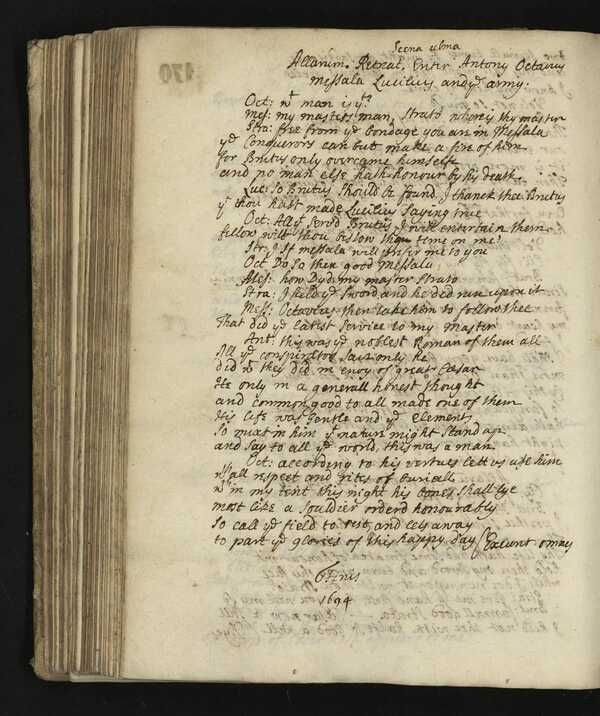 Scena ulma
Allarum. Retreat. Enter Antony Octavius
Messala Lucilius and yᵉ army:
Oct: wᵗ man is yᵗ?
Mes: my masters man, Strato where is thy master
Stra: free from yᵉ bondage you are in Messala
yᵉ Conquerors can but make a fire of him
for Brutus only overcame himselfe
and no man else hath honour by his death.
Luc: So Brutus should be found, I thanck thee Brutus
yᵗ thou hast made Lucilius saying true
Oct: All yᵗ serv'd Brutus, I will entertain them
fellow wilt thou bestow thy time on me?
Str: I if messala will prefer me to you
Oct Do so then good Messala
Mes: how dyd my master Strato
Stra: I held yᵉ sword and he did run upon it
Mess: Octavius then take him to follow thee
That did yᵉ latest service to my master
Ant. this was yᵉ noblest Roman of them all
All yᵉ conspirators save only he
did wᵗ they did in envy of great Cæsar
He only in a generall honest thought
and common good to all made one of them
His life was Gentle and yᵉ Element
So mixt in him yᵗ nature might stand up
and say to all yᵉ world, this was a man
Oct: according to his vertues lett us use him
wᵗʰ all respect and rites of buriall
wᵗ in my tent this night his bones shall lye
most like a souldier orderd honourably
So call yᵉ field to rest, and lets away
to part yᵉ glories of this happy day Exeunt omnes
Finis
1694
170